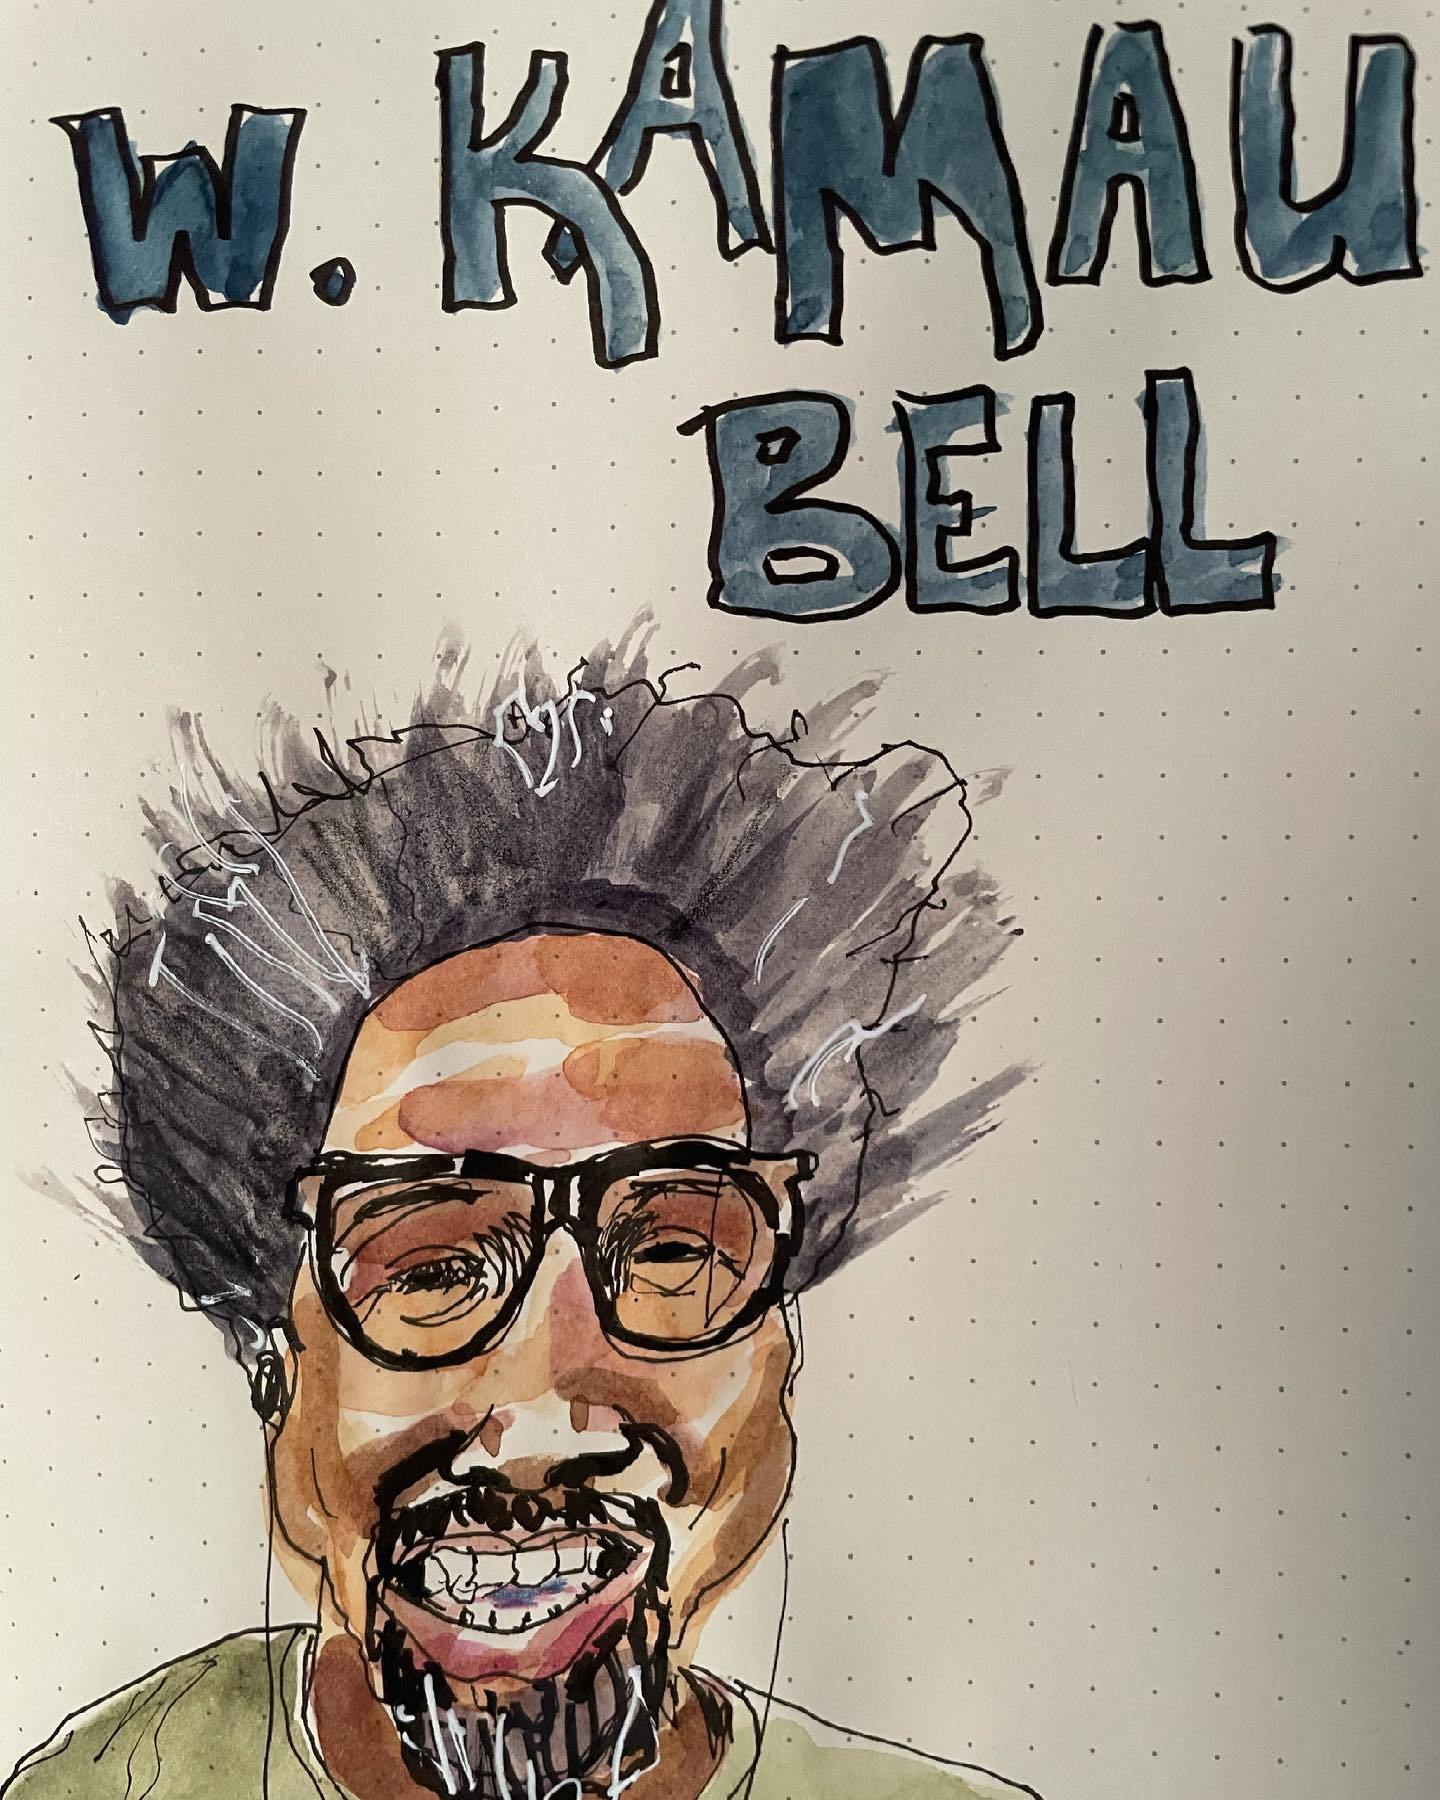 W. KAMAU
BELL